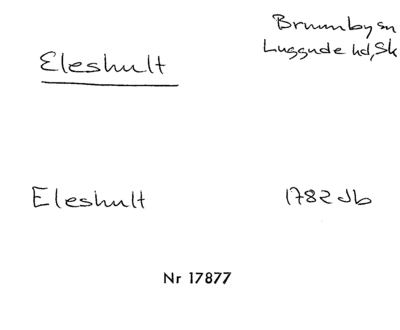 Eleshult
Brunnby sn
Luggude hd, Sk
Eleshult
1782 Jb
Nr 17877